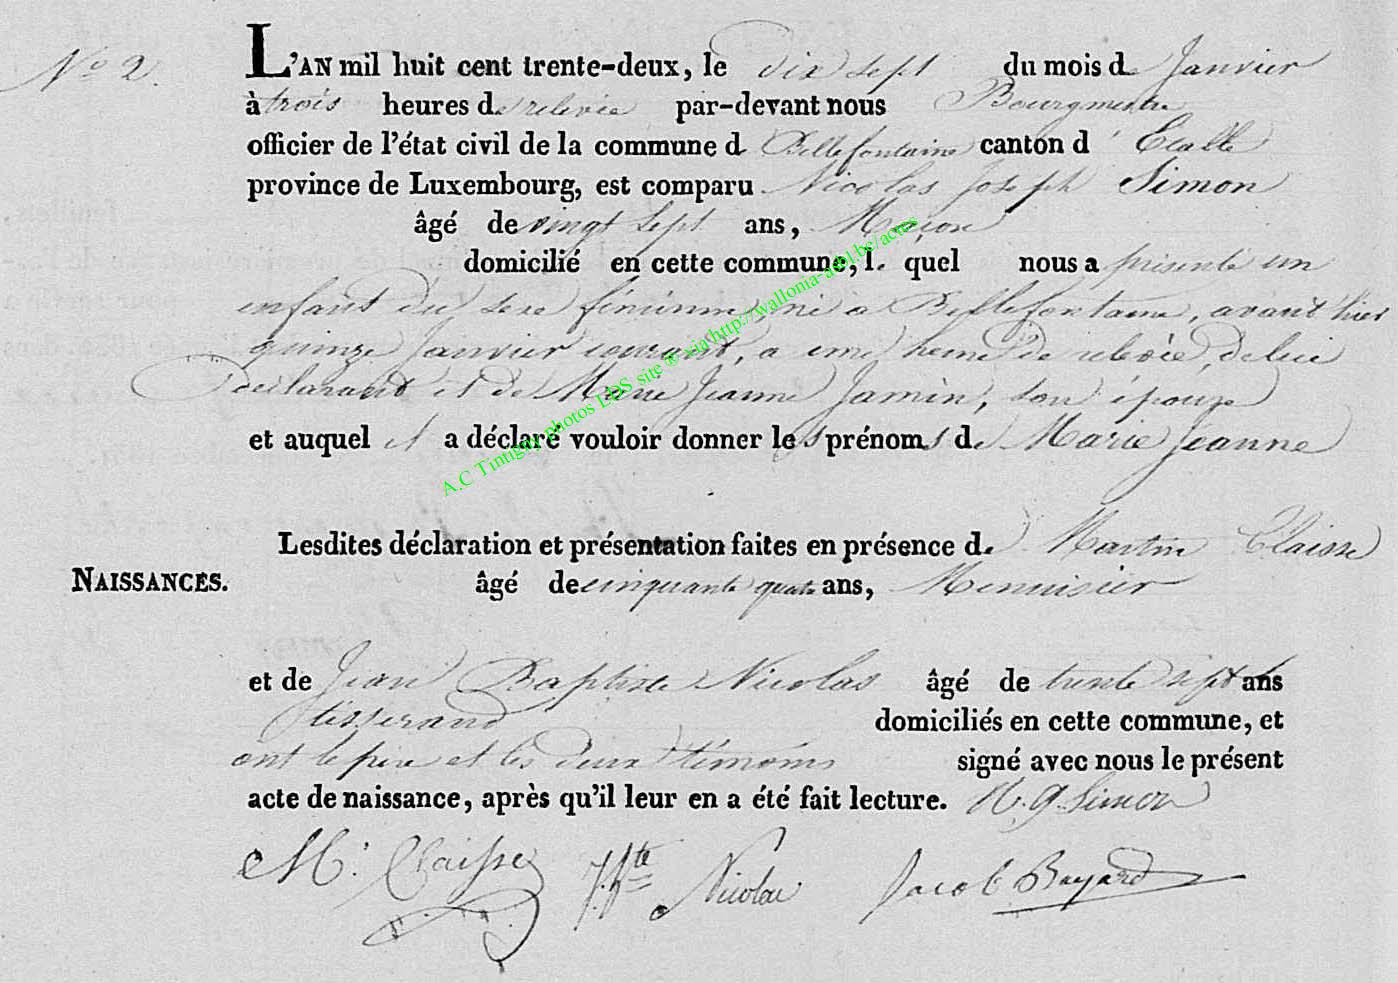 N.º 2.
L'AN mil huit cent trente-deux, le dix sept du mois de Janvier
à trois heures de relevée par-devant nous Bourgmestre
officier de l'état civil de la commune de Bellefontaine canton d'Etalle
province de Luxembourg, est comparu Nicolas Joseph Simon
âgé de vingt sept ans, Maçon
domicilié en cette commune, le quel nous a présenté un
enfant du sexe féminin, né à Bellefontaine, avant hier
quinze Janvier courant, a une heure de relevée, de lui
déclarant et de Marie Jeanne Jamin, son épouze
et auquel il a déclaré vouloir donner les prénoms de Marie Jeanne
Lesdites déclaration et présentation faites en présence de Martin Claisse
NAISSANCES. âgé de cinquante quatre ans, Menuisier
et de Jean Baptiste Nicolas âgé de trente sept ans
tisserand domiciliés en cette commune, et
ont le père et les deux témoins signé avec nous le présent
acte de naissance, après qu'il leur en a été fait lecture. N. J. Simon
M. Claisse J. Bte Nicolas Jacob Bayard
A.C Tintigny photos EDS site @ via http://wallonia-asbl.be/actes